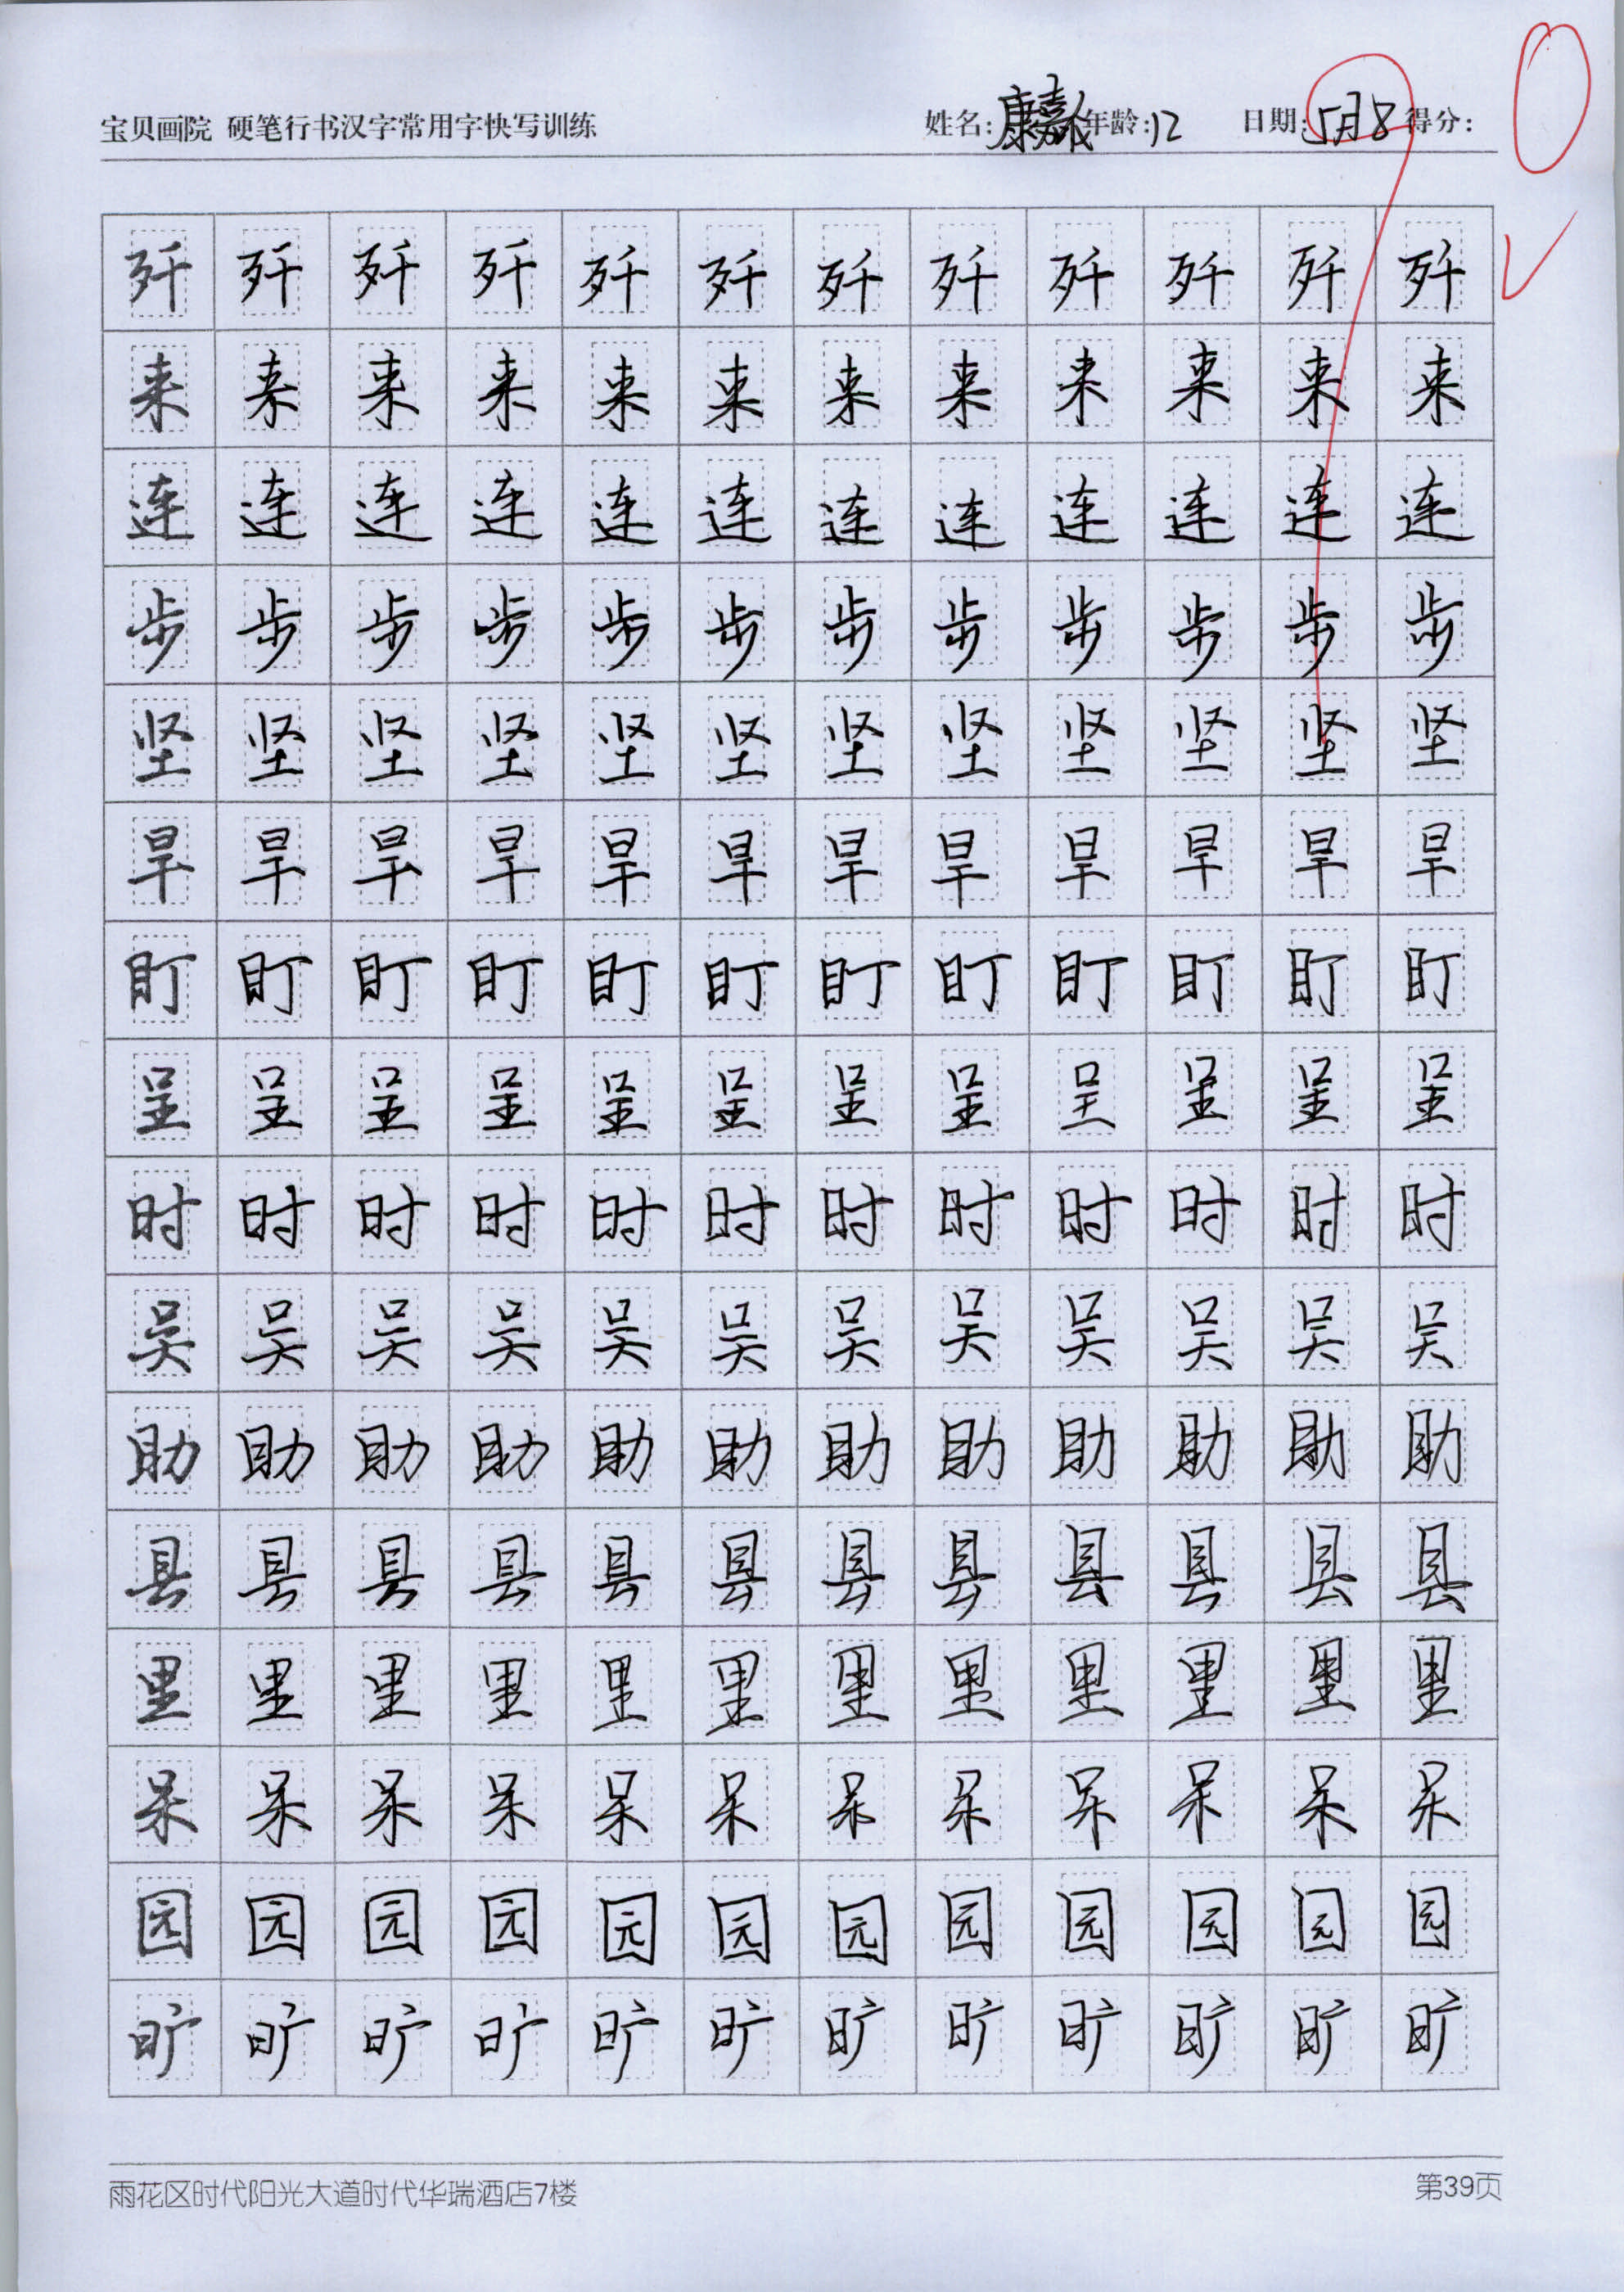 宝贝画院 硬笔行书汉字常用字快写训练 姓名: 康嘉 年龄: 12 日期: 5月8 得分:
歼 歼 歼 歼 歼 歼 歼 歼 歼 歼 歼 歼
来 来 来 来 来 来 来 来 来 来 来 来
连 连 连 连 连 连 连 连 连 连 连 连
步 步 步 步 步 步 步 步 步 步 步 步
坚 坚 坚 坚 坚 坚 坚 坚 坚 坚 坚 坚
旱 旱 旱 旱 旱 旱 旱 旱 旱 旱 旱 旱
盯 盯 盯 盯 盯 盯 盯 盯 盯 盯 盯 盯
呈 呈 呈 呈 呈 呈 呈 呈 呈 呈 呈 呈
时 时 时 时 时 时 时 时 时 时 时 时
吴 吴 吴 吴 吴 吴 吴 吴 吴 吴 吴 吴
助 助 助 助 助 助 助 助 助 助 助 助
县 县 县 县 县 县 县 县 县 县 县 县
里 里 里 里 里 里 里 里 里 里 里 里
呆 呆 呆 呆 呆 呆 呆 呆 呆 呆 呆 呆
园 园 园 园 园 园 园 园 园 园 园 园
旷 旷 旷 旷 旷 旷 旷 旷 旷 旷 旷 旷
雨花区时代阳光大道时代华瑞酒店7楼 第39页